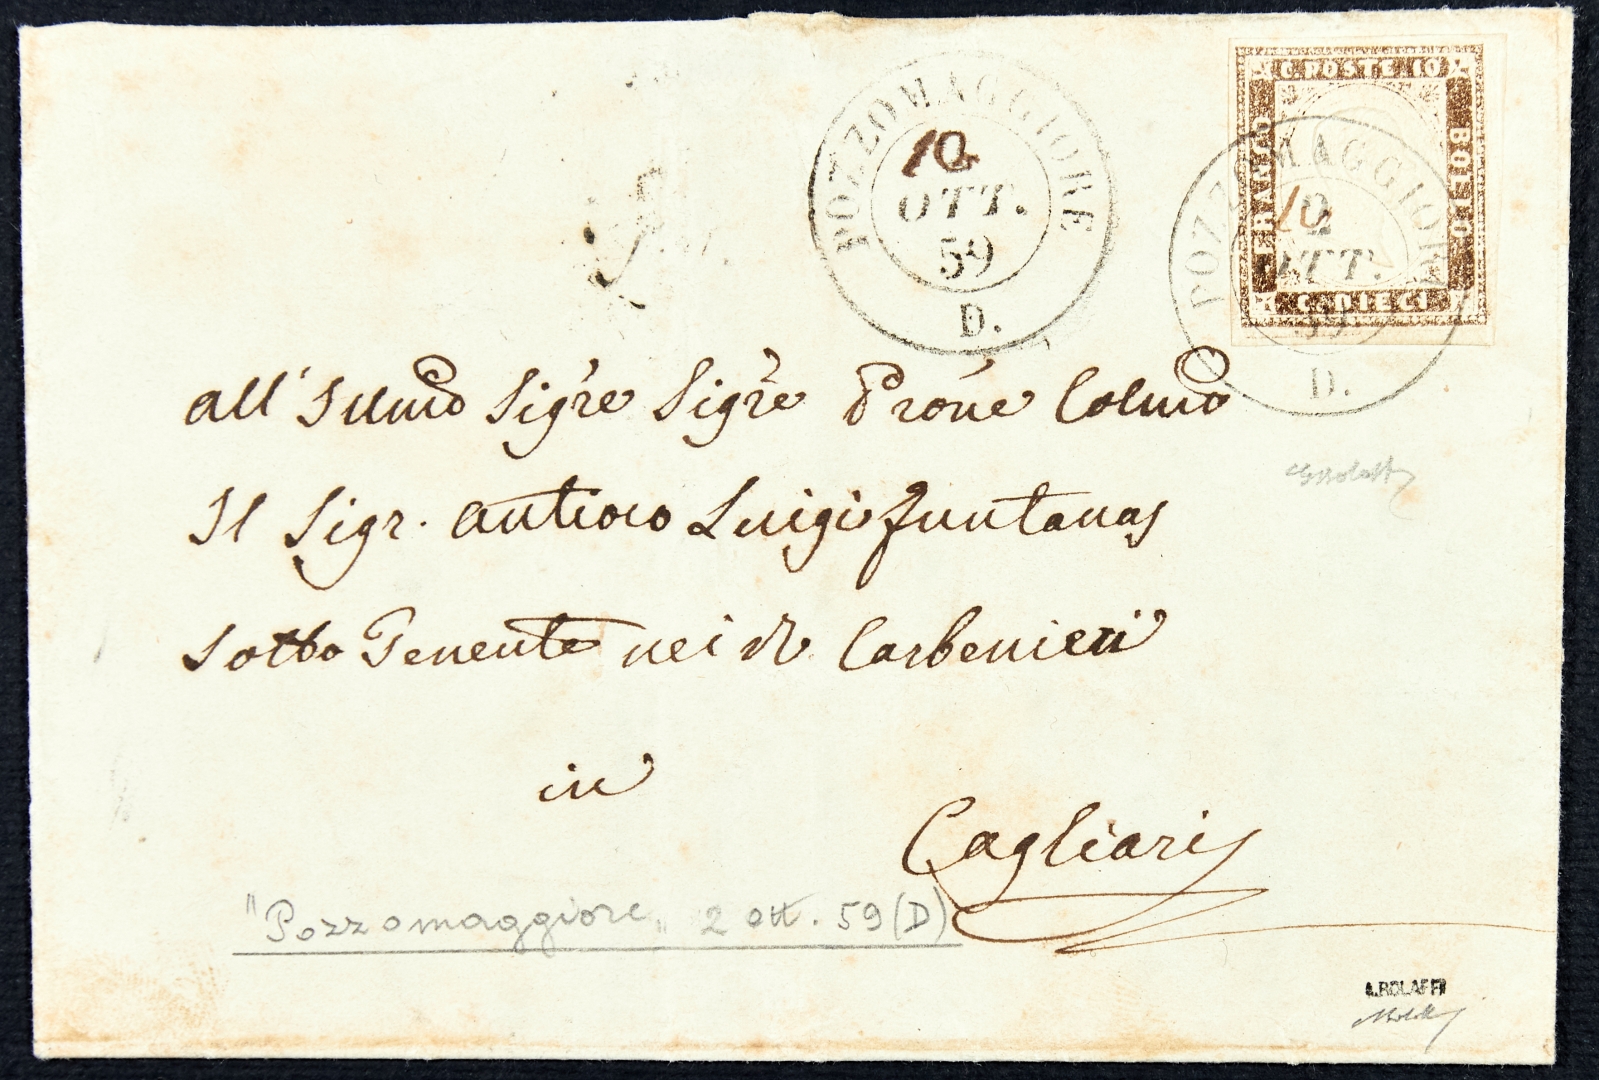 POZZOMAGGIORE
10
OTT.
59
D.
C. POSTE 10
FRANCO
BOLLO
C. DIECI
POZZOMAGGIORE
10
2
OTT.
59
D.
all' Illmo Sigre Sigre Prone Colmo
Il Sigr. Antioco Luigi Funtanas
Sotto Tenente nei Carbenieri
in
Cagliari
"Pozzomaggiore" 2 ott. 59 (D)
A. BOLAFFI